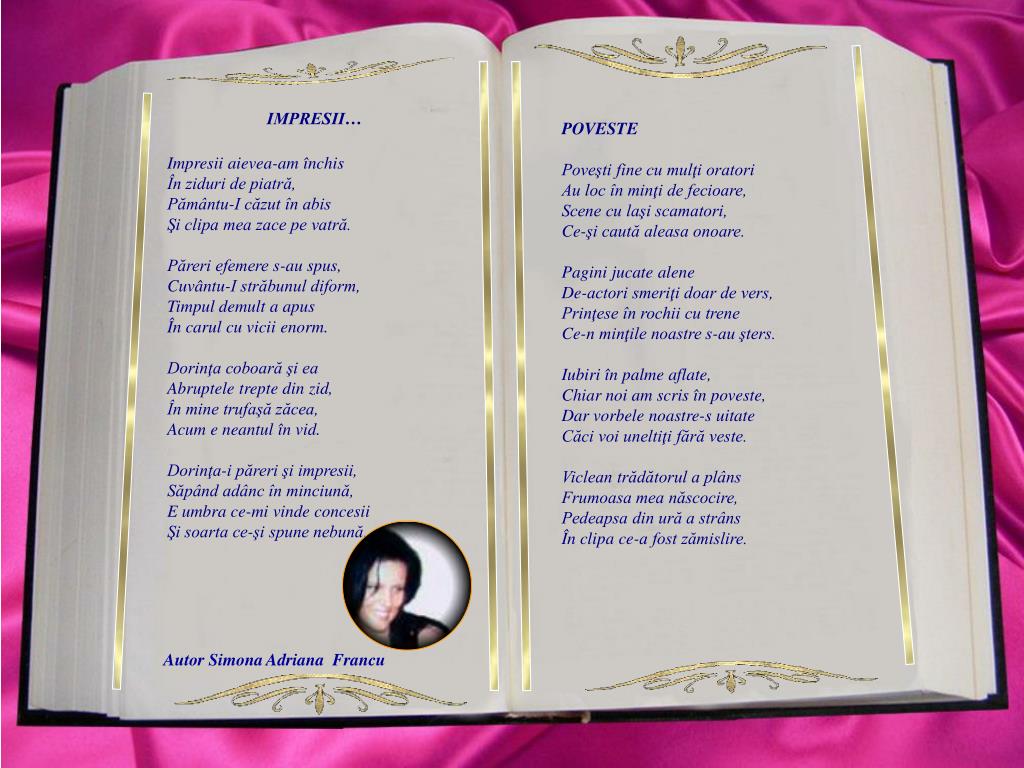 IMPRESII…
Impresii aievea-am închis
În ziduri de piatră,
Pământu-I căzut în abis
Şi clipa mea zace pe vatră.
Păreri efemere s-au spus,
Cuvântu-I străbunul diform,
Timpul demult a apus
În carul cu vicii enorm.
Dorinţa coboară şi ea
Abruptele trepte din zid,
În mine trufaşă zăcea,
Acum e neantul în vid.
Dorinţa-i păreri şi impresii,
Săpând adânc în minciună,
E umbra ce-mi vinde concesii
Şi soarta ce-şi spune nebună
Autor Simona Adriana Francu
POVESTE
Poveşti fine cu mulţi oratori
Au loc în minţi de fecioare,
Scene cu laşi scamatori,
Ce-şi caută aleasa onoare.
Pagini jucate alene
De-actori smeriţi doar de vers,
Prinţese în rochii cu trene
Ce-n minţile noastre s-au şters.
Iubiri în palme aflate,
Chiar noi am scris în poveste,
Dar vorbele noastre-s uitate
Căci voi uneltiţi fără veste.
Viclean trădătorul a plâns
Frumoasa mea născocire,
Pedeapsa din ură a strâns
În clipa ce-a fost zămislire.